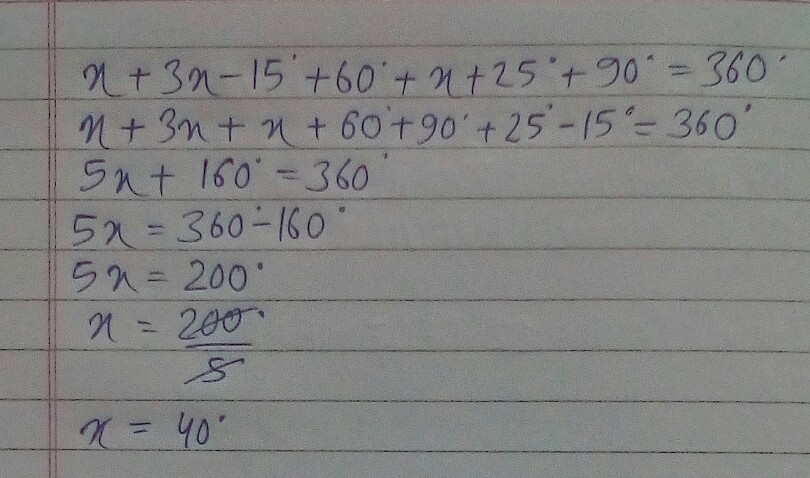 x + 3x - 15° + 60° + x + 25° + 90° = 360°
x + 3x + x + 60° + 90° + 25° - 15° = 360°
5x + 160° = 360°
5x = 360° - 160°
5x = 200°
x = 200°
5
x = 40°